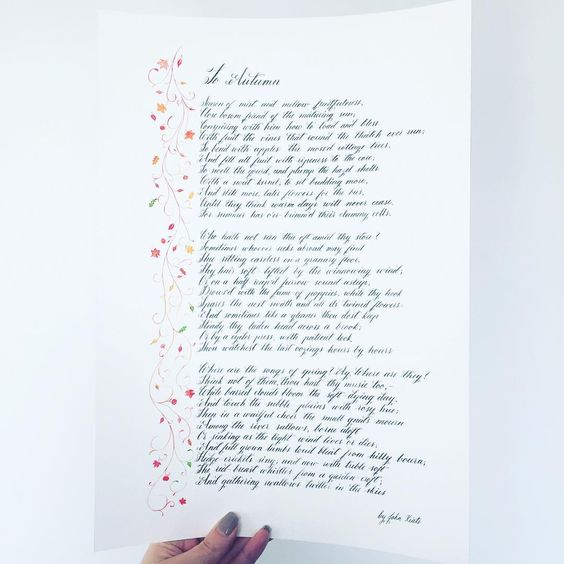 To Autumn
Season of mist and mellow fruitfulness,
Close bosom friend of the maturing sun;
Conspiring with him how to load and bless
With fruit the vines that round the thatch eves run;
To bend with apples the mossed cottage trees,
And fill all fruit with ripeness to the core;
To swell the gourd, and plump the hazel shells
With a sweet kernel; to set budding more,
And still more, later flowers for the bees,
Until they think warm days will never cease,
For summer has o'er-brimm'd their clammy cells.
Who hath not seen thee oft amid thy store?
Sometimes whoever seeks abroad may find
Thee sitting careless on a granary floor,
Thy hair soft lifted by the winnowing wind;
Or on a half reap'd furrow sound asleep,
Drows'd with the fume of poppies, while thy hook
Spares the next swath and all its twined flowers
And sometimes like a gleaner thou dost keep
Steady thy laden head across a brook;
Or by a cyder press, with patient look,
Thou watchest the last oozings hours by hours
Where are the songs of spring? Ay, Where are they?
Think not of them, thou hast thy music too,-
While barred clouds bloom the soft dying day,
And touch the stubble plains with rosy hue;
Then in a wailful choir the small gnats mourn
Among the river sallows, borne aloft
Or sinking as the light wind lives or dies;
And full grown lambs loud bleat from hilly bourn;
Hedge crickets sing; and now with treble soft
The red breast whistles from a garden croft;
And gathering swallows twitter in the skies
by John Keats